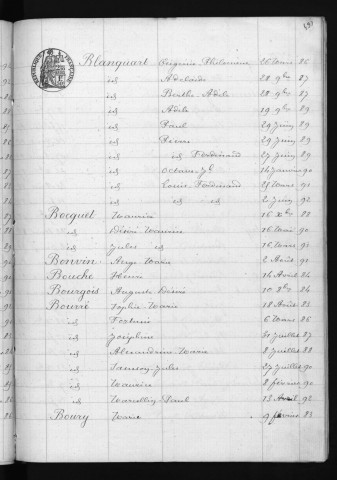 Blanquart Virginie Philomène 26 Mars 86
id Adelaïde 28 9bre 87
id Berthe Adele 28 9bre 87
id Adele 19 9bre 89
id Paul 29 Juin 89
id Pierre 29 Juin 89
id id Ferdinand 27 Juin 89
id Octavie 24 Janvier 90
id Louis Ferdinand 21 Mars 91
id id id 2 Juin 92
Bocquet Maurice 16 Xbre 88
id Désiré Maurice 16 Mai 90
id Jules id 16 Mars 93
Bonvin Marie 2 Août 91
Bouche Henri 14 Août 84
Bourgois Auguste Désiré 10 Xbre 84
Bourré Sophie Marie 18 Août 83
id Fortuné 6 Mars 86
id Joséphine 30 Juillet 87
id Alexandrine Marie 8 Juillet 88
id Jules 27 Juillet 90
id Maurice 8 février 90
id Paul 13 Avril 92
Boury Marie 9 février 83